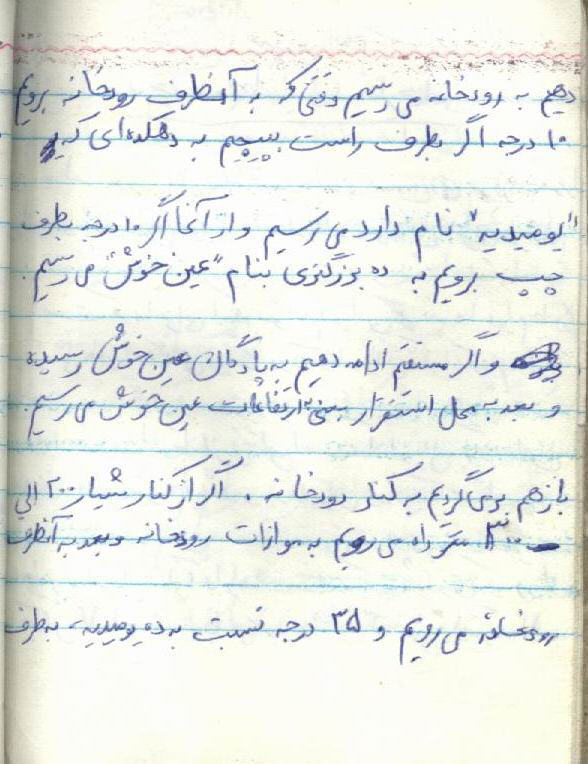 دهیم به رودخانه می رسیم وقتی که به آنطرف رودخانه برویم
۱۰ درجه اگر بطرف راست بپیچیم به دهکده‌ای که
"بومیدیه" نام دارد می رسیم و از آنجا اگر ۱۰ درجه بطرف
چپ برویم به ده بزرگتری بنام "عین خوش" می رسیم.
و اگر مستقیم ادامه دهیم به پادگان عین خوش رسیده
و بعد به محل استقرار یعنی ارتفاعات عین خوش می رسیم.
باز هم برمی گردیم به کنار رودخانه. اگر از کنار شیار ۲۰۰ الی
۳۰۰ متر راه می رویم به موازات رودخانه و بعد به آنطرف
رودخانه می رویم و ۳۵ درجه نسبت به ده بومیدیه، به طرف